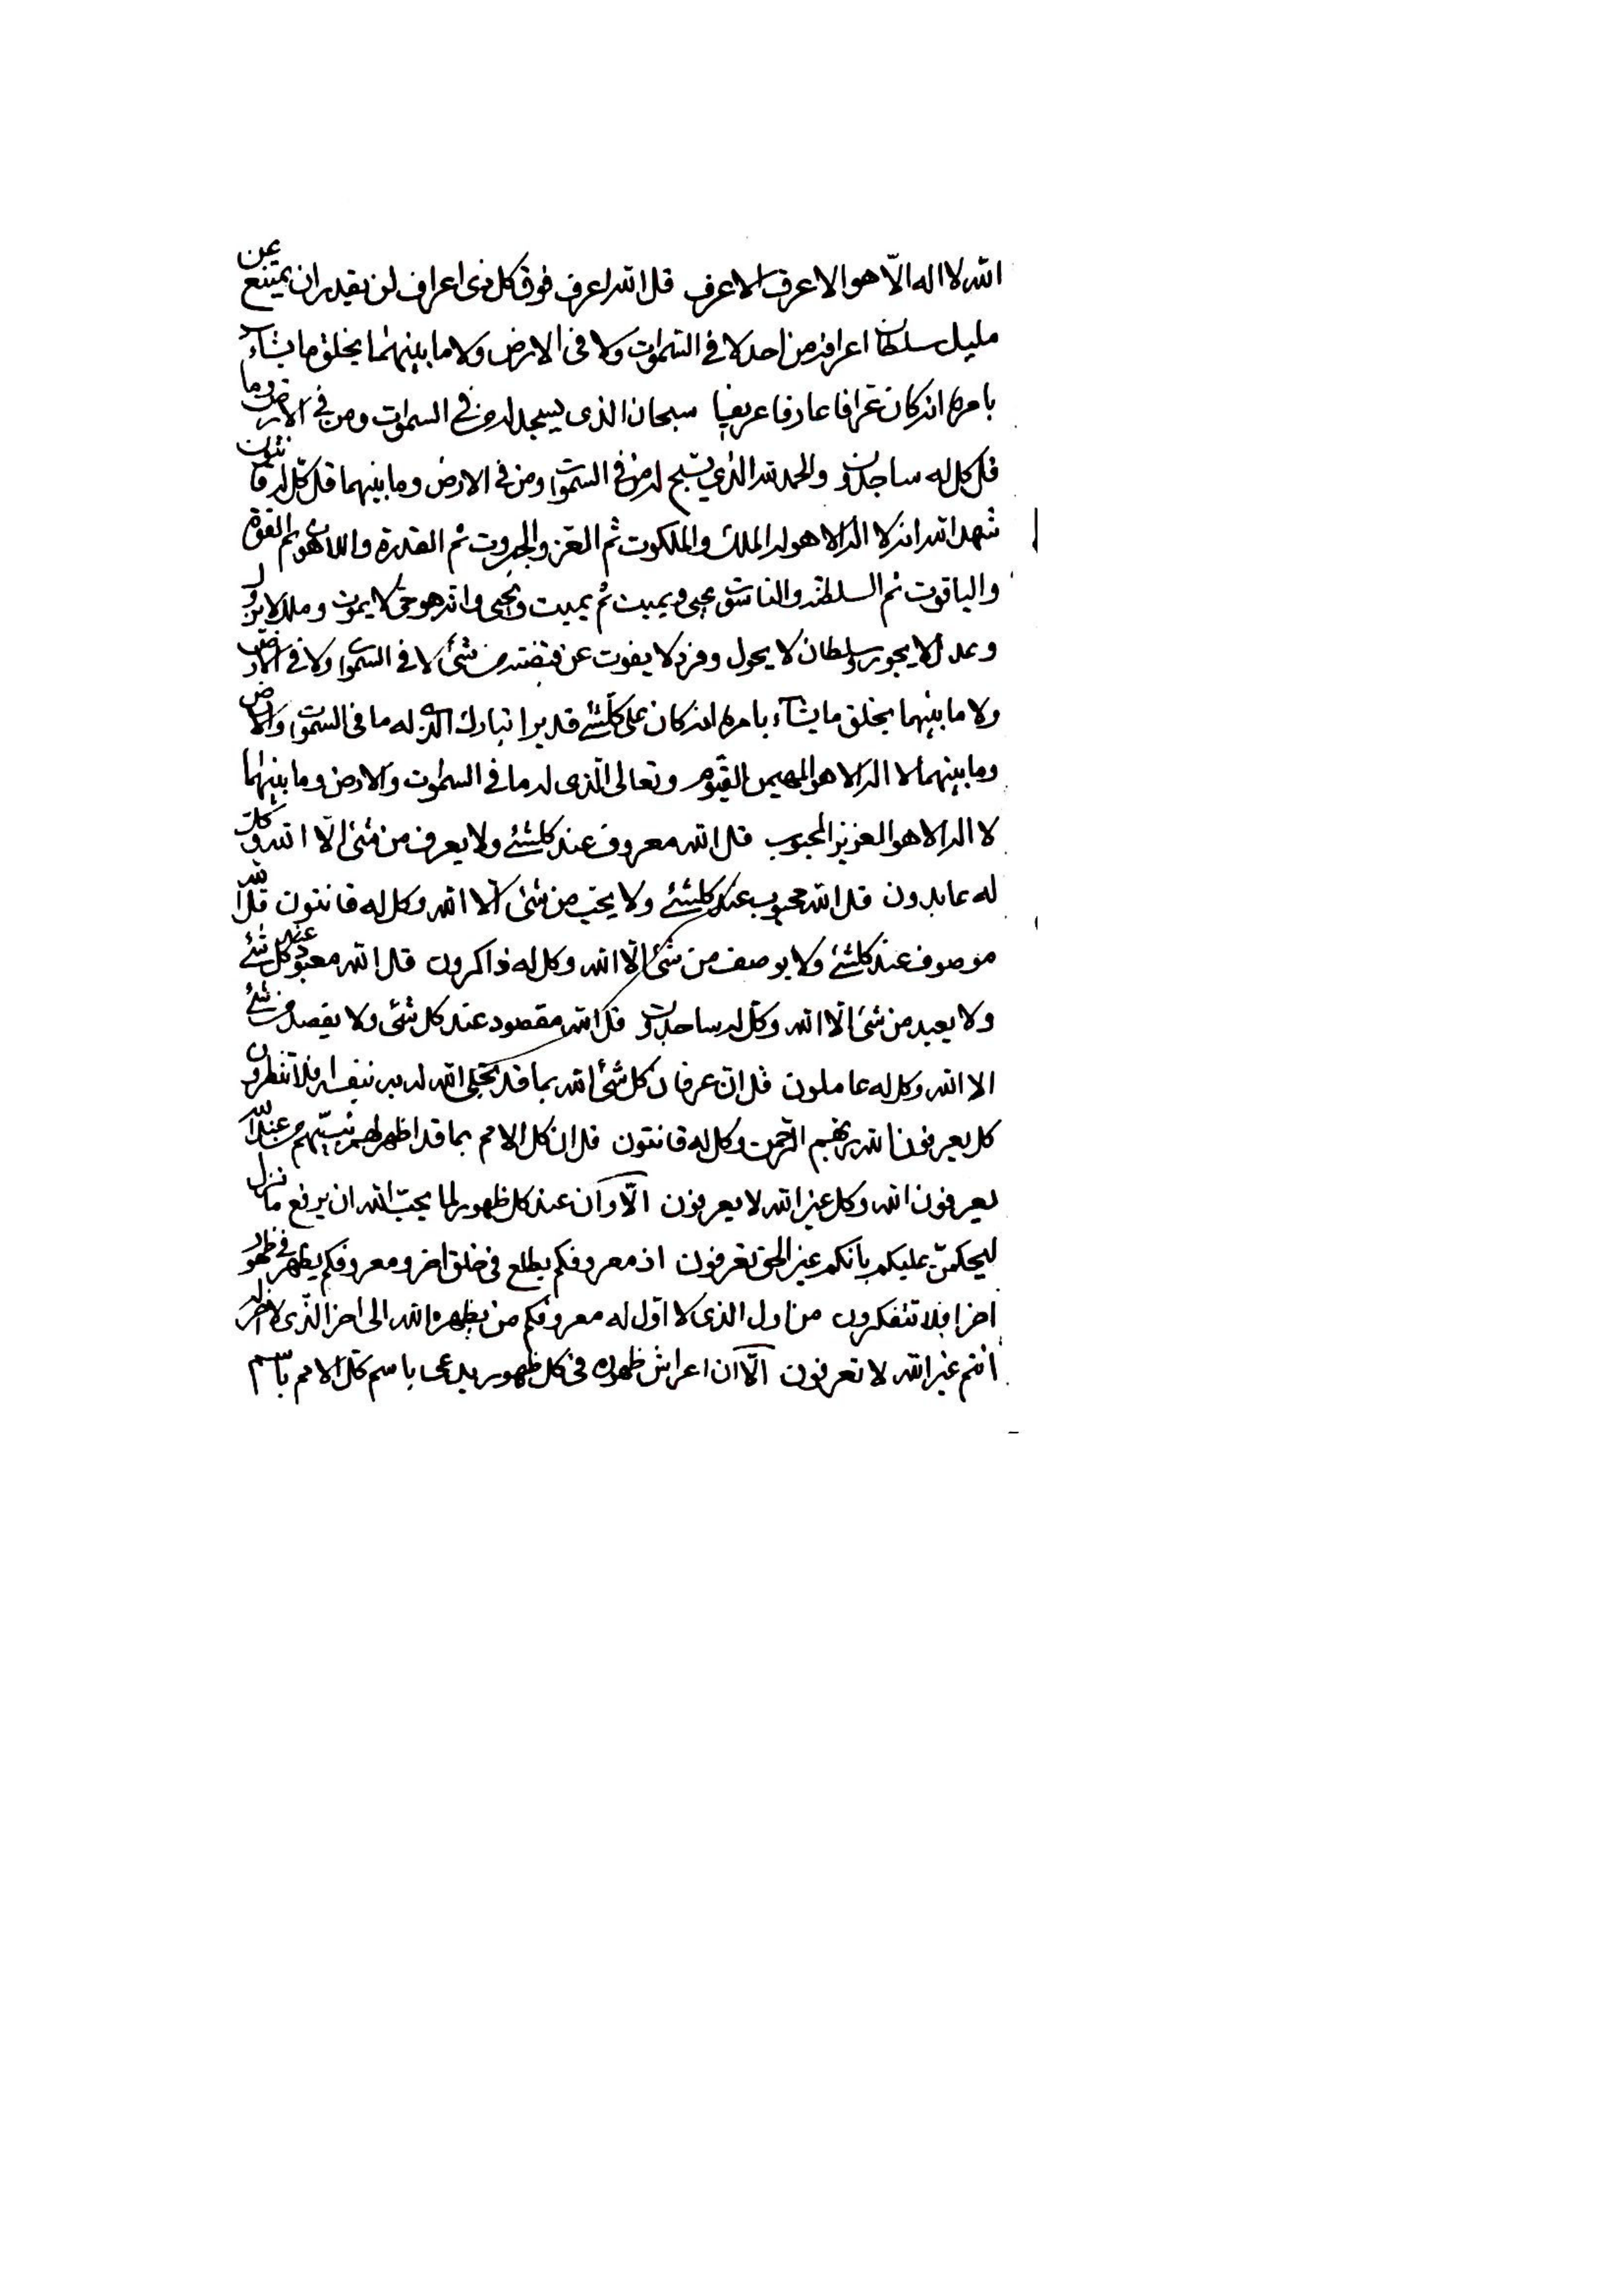 الله لا اله الّا هو الاعرف الاعرف قل الله اعرف فوق كل ذى اعراف لن يقدر ان يمتنع عن
مليك سلطان اعرافه من احد لا فى السموات ولا فى الارض ولا ما بينهما يخلق ما يشآء
بامره انه كان عرافا عارفا عريفا سبحان الذى يسجد له من فى السموات ومن فى الارض وما
قل كل له ساجدون والحمد لله الذي يسبح له من فى السموات ومن فى الارض وما بينهما قل كلّ له قانتون
شهد الله انه لا اله الا هو له الملك والملكوت ثم العز والجبروت ثم القدرة واللاهوت ثم القوة
والياقوت ثم السلطنه والناسوت يحيى ويميت ثم يميت ويحيى وانه هو حى لا يموت وملك لا يزول
وعدل لا يجور وسلطان لا يحول وفرد لا يفوت عن قبضته من شئ لا فى السموات ولا فى الارض
ولا ما بينهما يخلق ما يشآء بامره انه كان على كلشئ قديرا تبارك الذى له ما فى السموات والارض
وما بينهما لا اله الا هو المهيمن القيوم وتعالى الّذى له ما فى السموات والارض وما بينهما
لا اله الا هو العزيز المحبوب قل الله معروف عند كلشئ ولا يعرف من شئ الّا الله وكل
له عابدون قل الله محبوب عند كلشئ ولا يحب من شئ الّا الله وكل له قانتون قل الله
موصوف عند كلشئ ولا يوصف من شئ الّا الله وكل له ذاكرون قل الله معبود عند كل شئ
ولا يعبد من شئ الّا الله وكل له ساجدون قل الله مقصود عند كل شئ ولا يقصد من شئ
الا الله وكل له عاملون قل ان عرفان كل شئ الله بما قد تجلى الله له به بنفسه افلا تنظرون
كل يعرفون الله ربهم الرحمن وكل له قانتون قل ان كل الامم بما قد اظهر لهم نبيّهم من عند الله
يعرفون الله وكل غير الله لا يعرفون الّا وان عند كل ظهور لما يحبّ الله ان يرفع ما نزل
ليحكمنّ عليكم بانكم غير الحق تعرفون اذ معروفكم يطلع فى خلق اخر ومعروفكم يظهر فى ظهور
اخر افلا تتفكرون من اول الذى لا اوّل له معروفكم من يظهره الله الى اخر الّذى لا اخر له
انتم غير الله لا تعرفون الّا ان اعراش ظهوره فى كل ظهور يدعى باسم كل الامم باسم